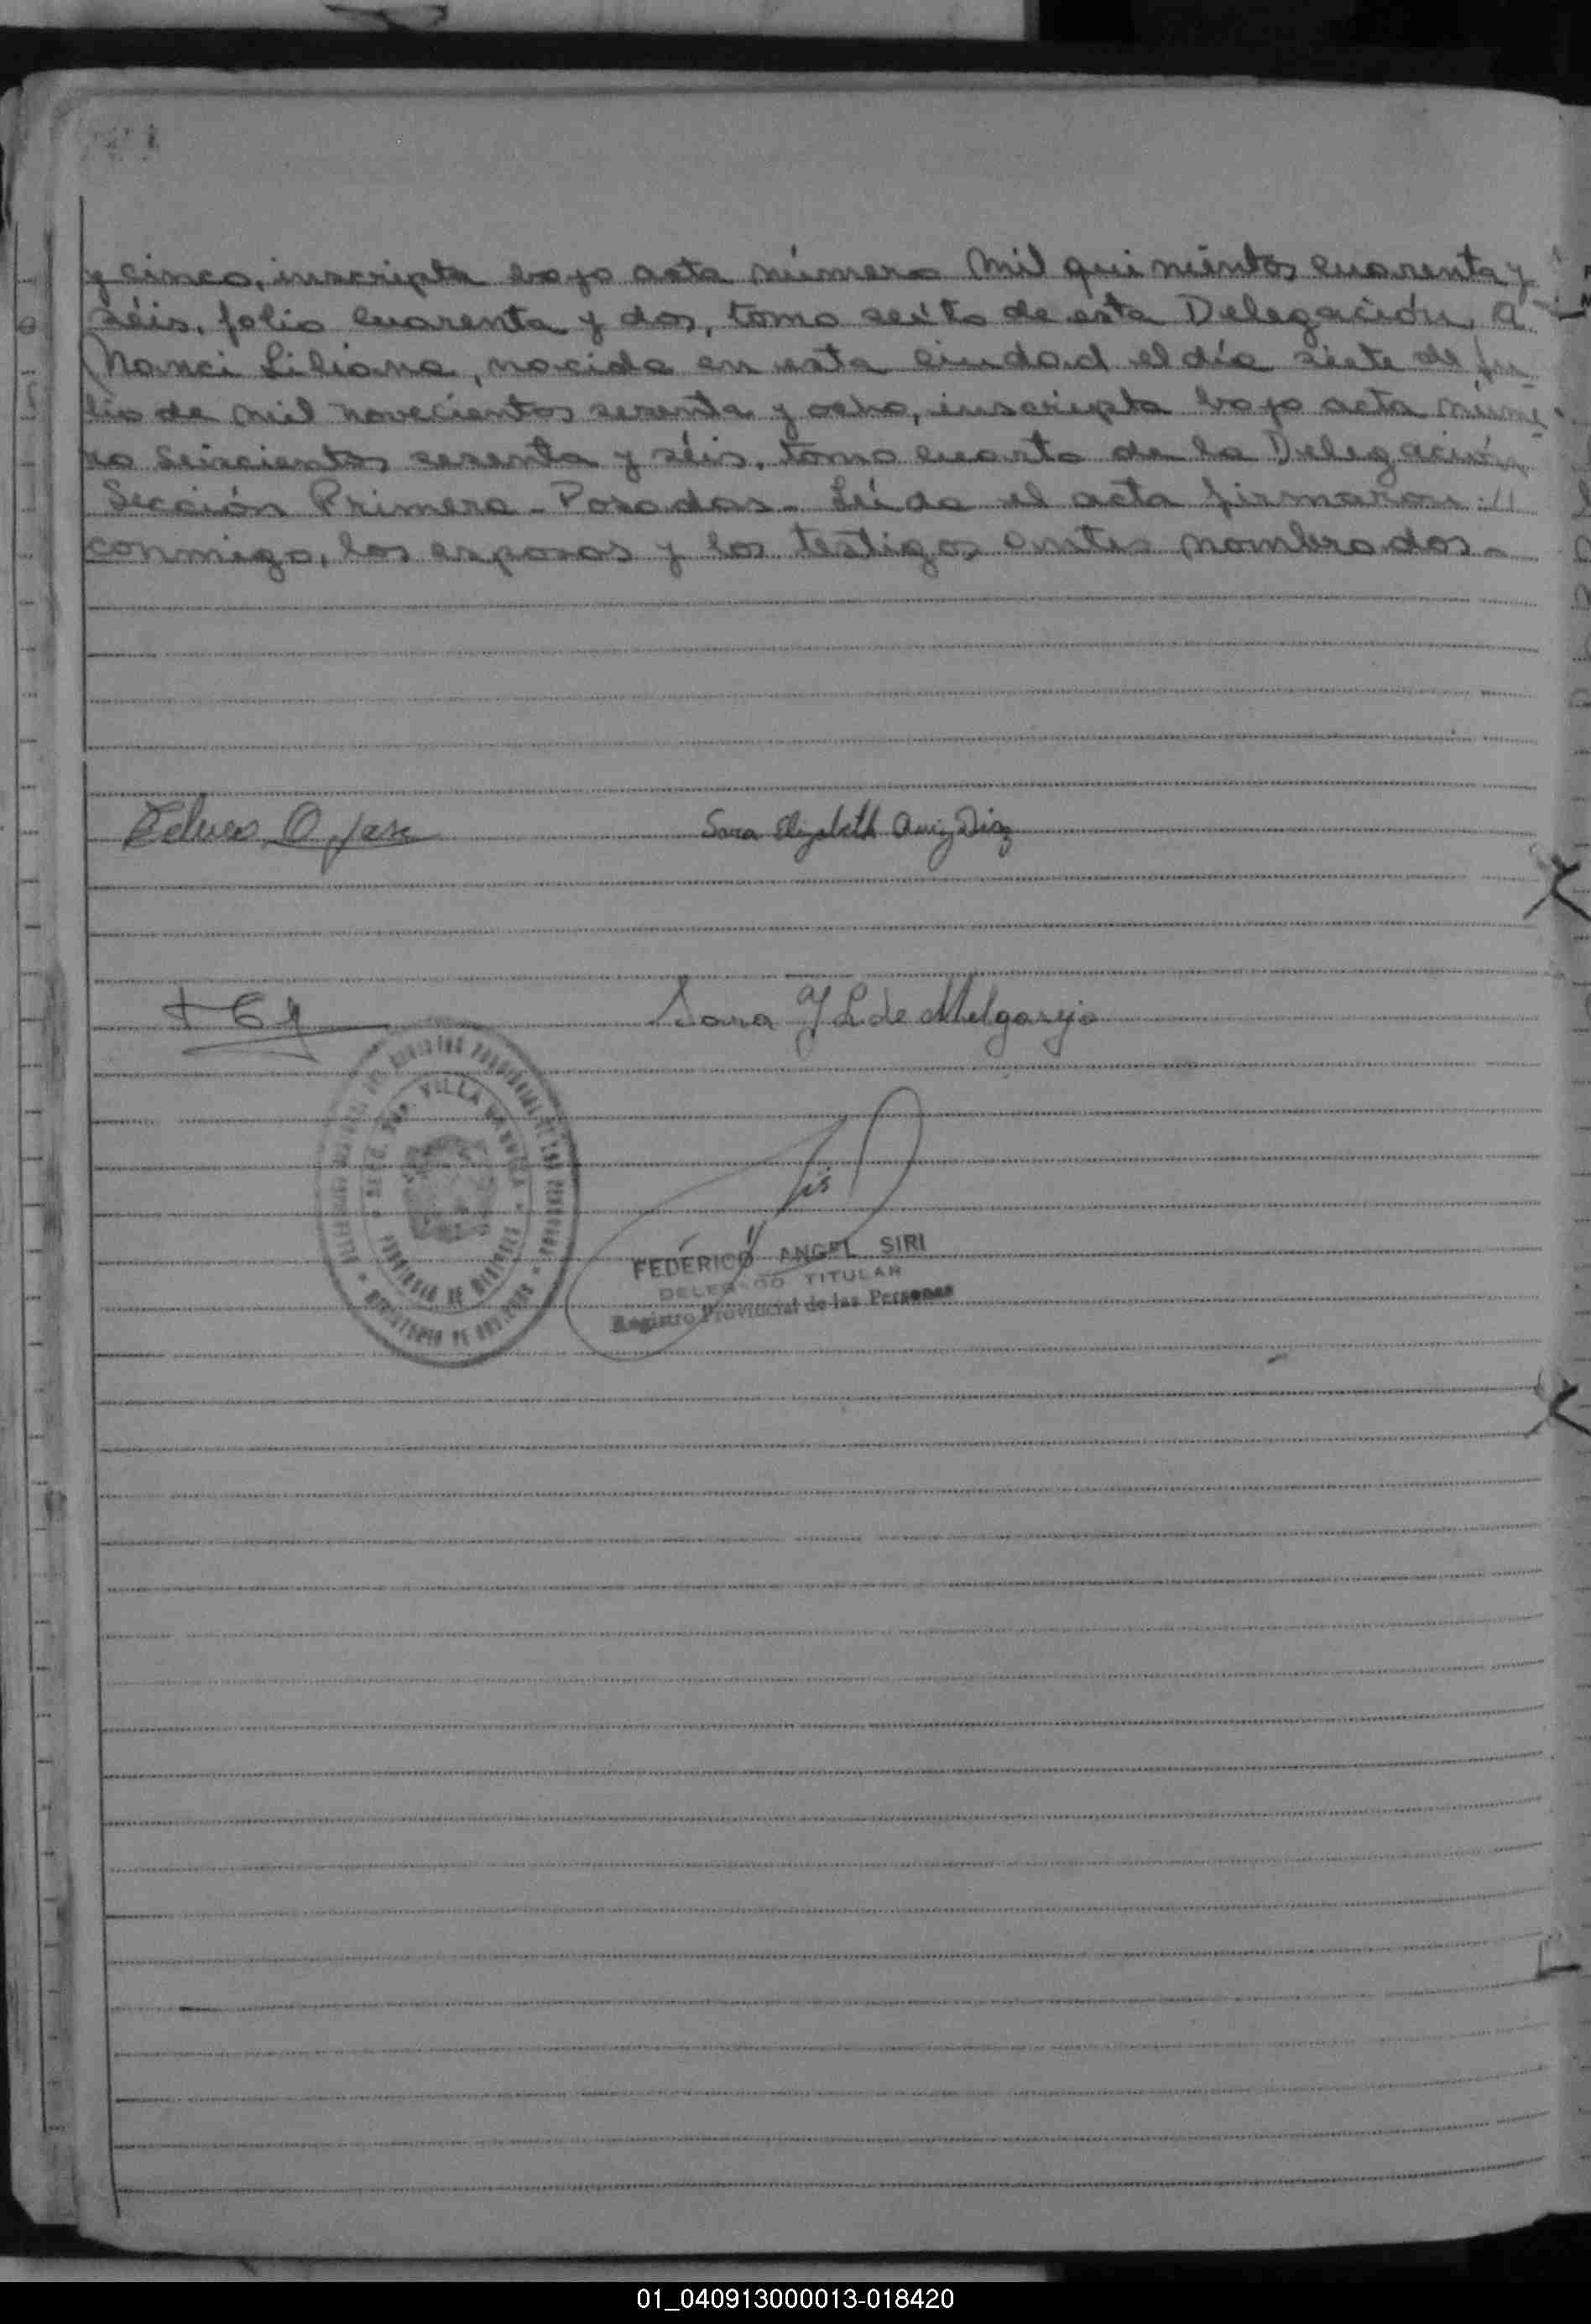 y cinco, inscripta bajo acta número mil quinientos cuarenta y
séis, folio cuarenta y dos, tomo sexto de esta Delegación, a
Nanci Liliana, nacida en esta ciudad el día siete de ju
lio de mil novecientos sesenta y ocho, inscripta bajo acta núme
ro seiscientos sesenta y séis, tomo cuarto de la Delegación
Sección Primera - Posadas - Leída el acta firmaron: //
conmigo, los esposos y los testigos antes nombrados -
Sara Elizabeth Ruiz Diaz
Sara Y L de Melgarejo
VILLA
PROVINCIA DE MISIONES
FEDERICO ANGEL SIRI
DELEGADO TITULAR
Registro Provincial de las Personas
01_040913000013-018420